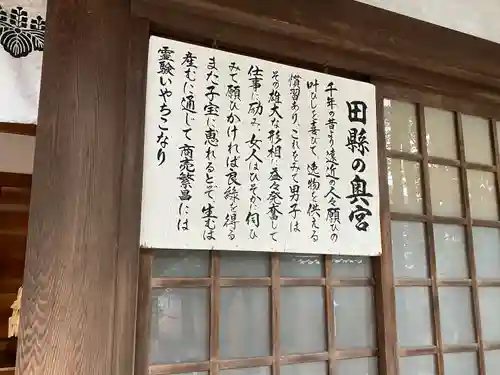 田縣の奥宮
千年の昔より遠近の人々願ひの
叶ひしを喜びて、造物を供える
慣習あり、これをみて男子は
その雄大な形相に益々発奮して
仕事に励み、女人はひそかに伺ひ
みて願ひかければ良縁を得る
また子宝に恵れるとて、生むは
産むに通じて、商売繁昌には
霊験いやちこなり